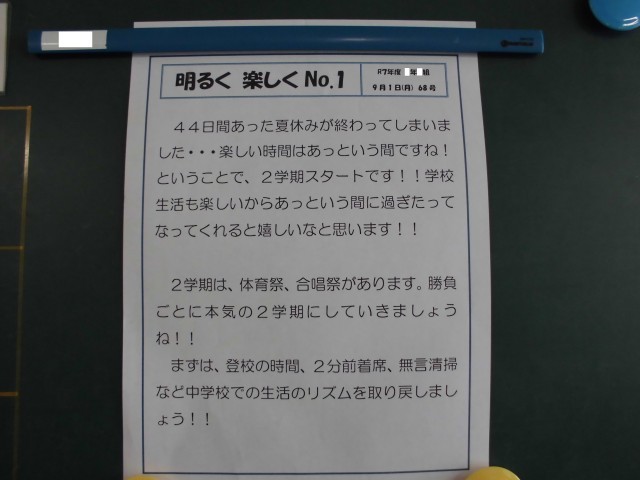 明るく 楽しく No.1
R7年度 年 組
9月1日(月) 68号
４４日間あった夏休みが終わってしまいま
した・・・楽しい時間はあっという間ですね！
ということで、２学期スタートです！！学校
生活も楽しいからあっという間に過ぎたって
なってくれると嬉しいなと思います！！
２学期は、体育祭、合唱祭があります。勝負
ごとに本気の２学期にしていきましょう
ね！！
まずは、登校の時間、２分前着席、無言清掃
など中学校での生活のリズムを取り戻しまし
ょう！！